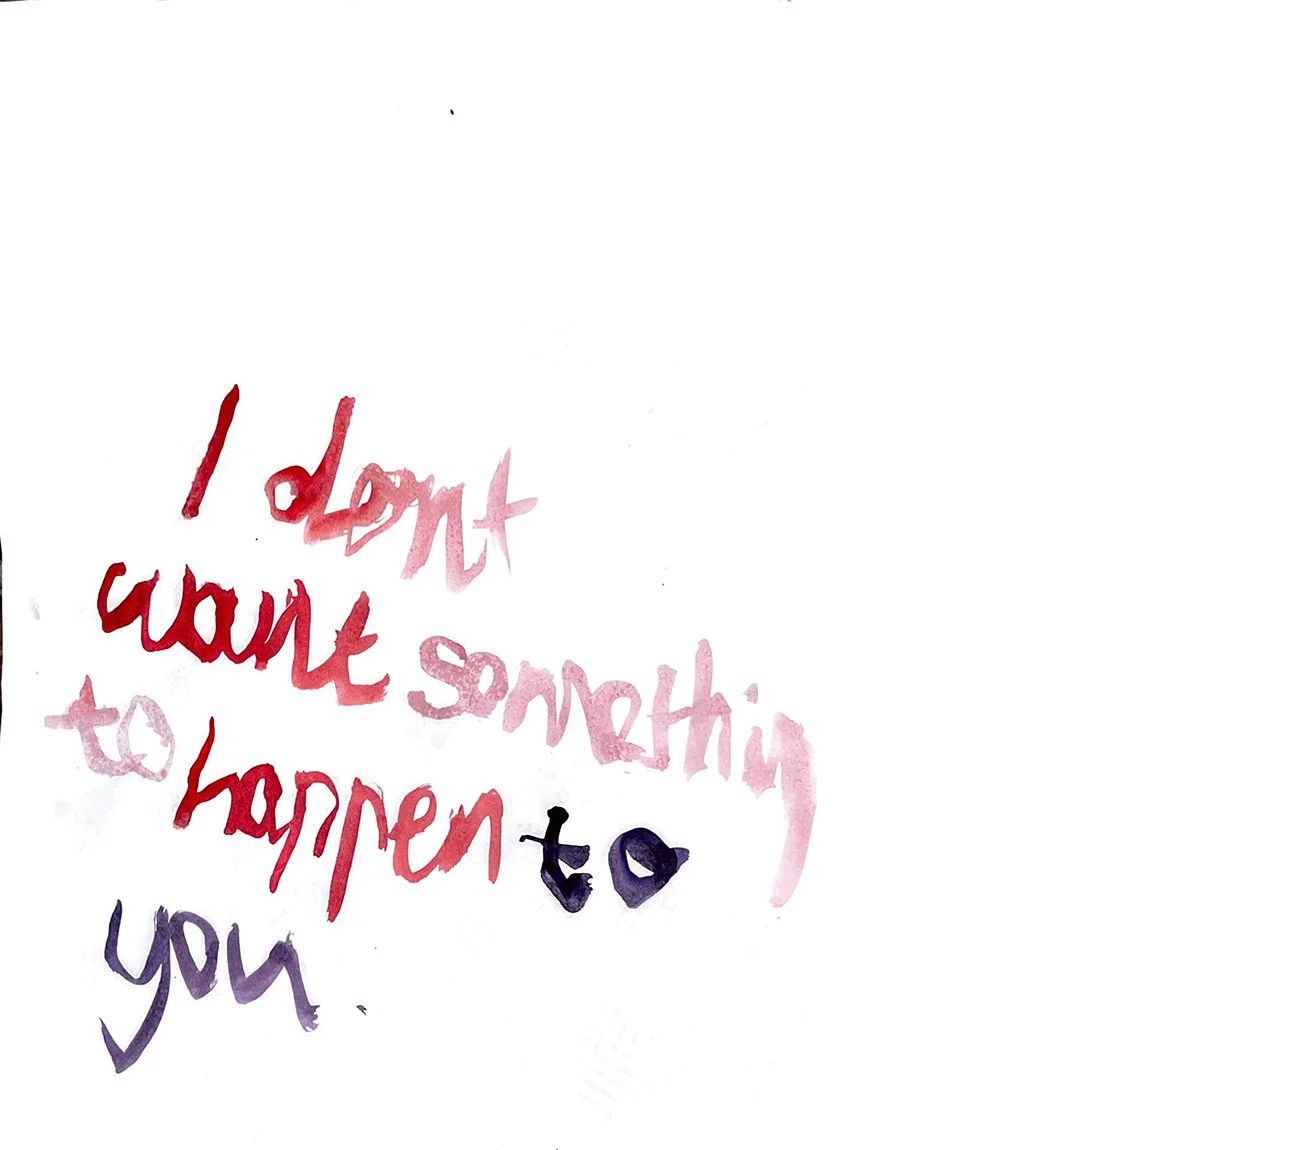 I dont
want something
to happen to
you.